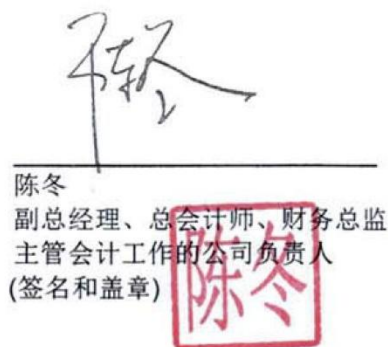 陈冬
陈冬
副总经理、总会计师、财务总监
主管会计工作的公司负责人
(签名和盖章)
陈冬